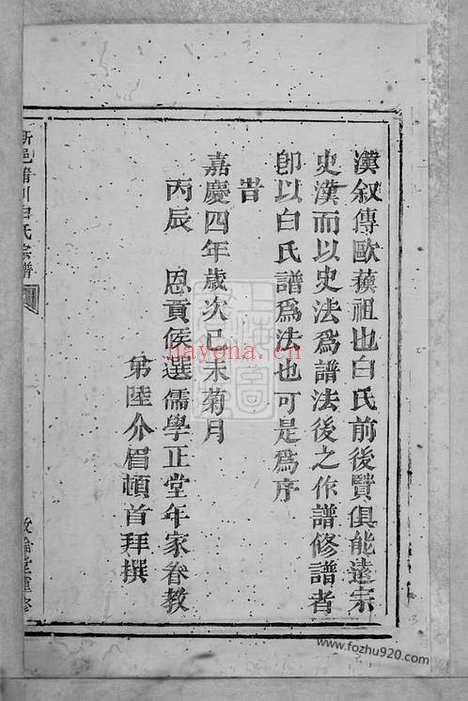 漢叙傳歐蘇祖也白氏前後賢俱能遠宗
史漢而以史法爲譜法後之作譜修譜者
卽以白氏譜爲法也可是爲序
旹
嘉慶四年歲次己未菊月
丙辰 恩貢候選儒學正堂年家眷教
弟陸介眉頓首拜撰
邑 川白氏宗譜
堂重修
hayona.cn
www.fozhu920.com